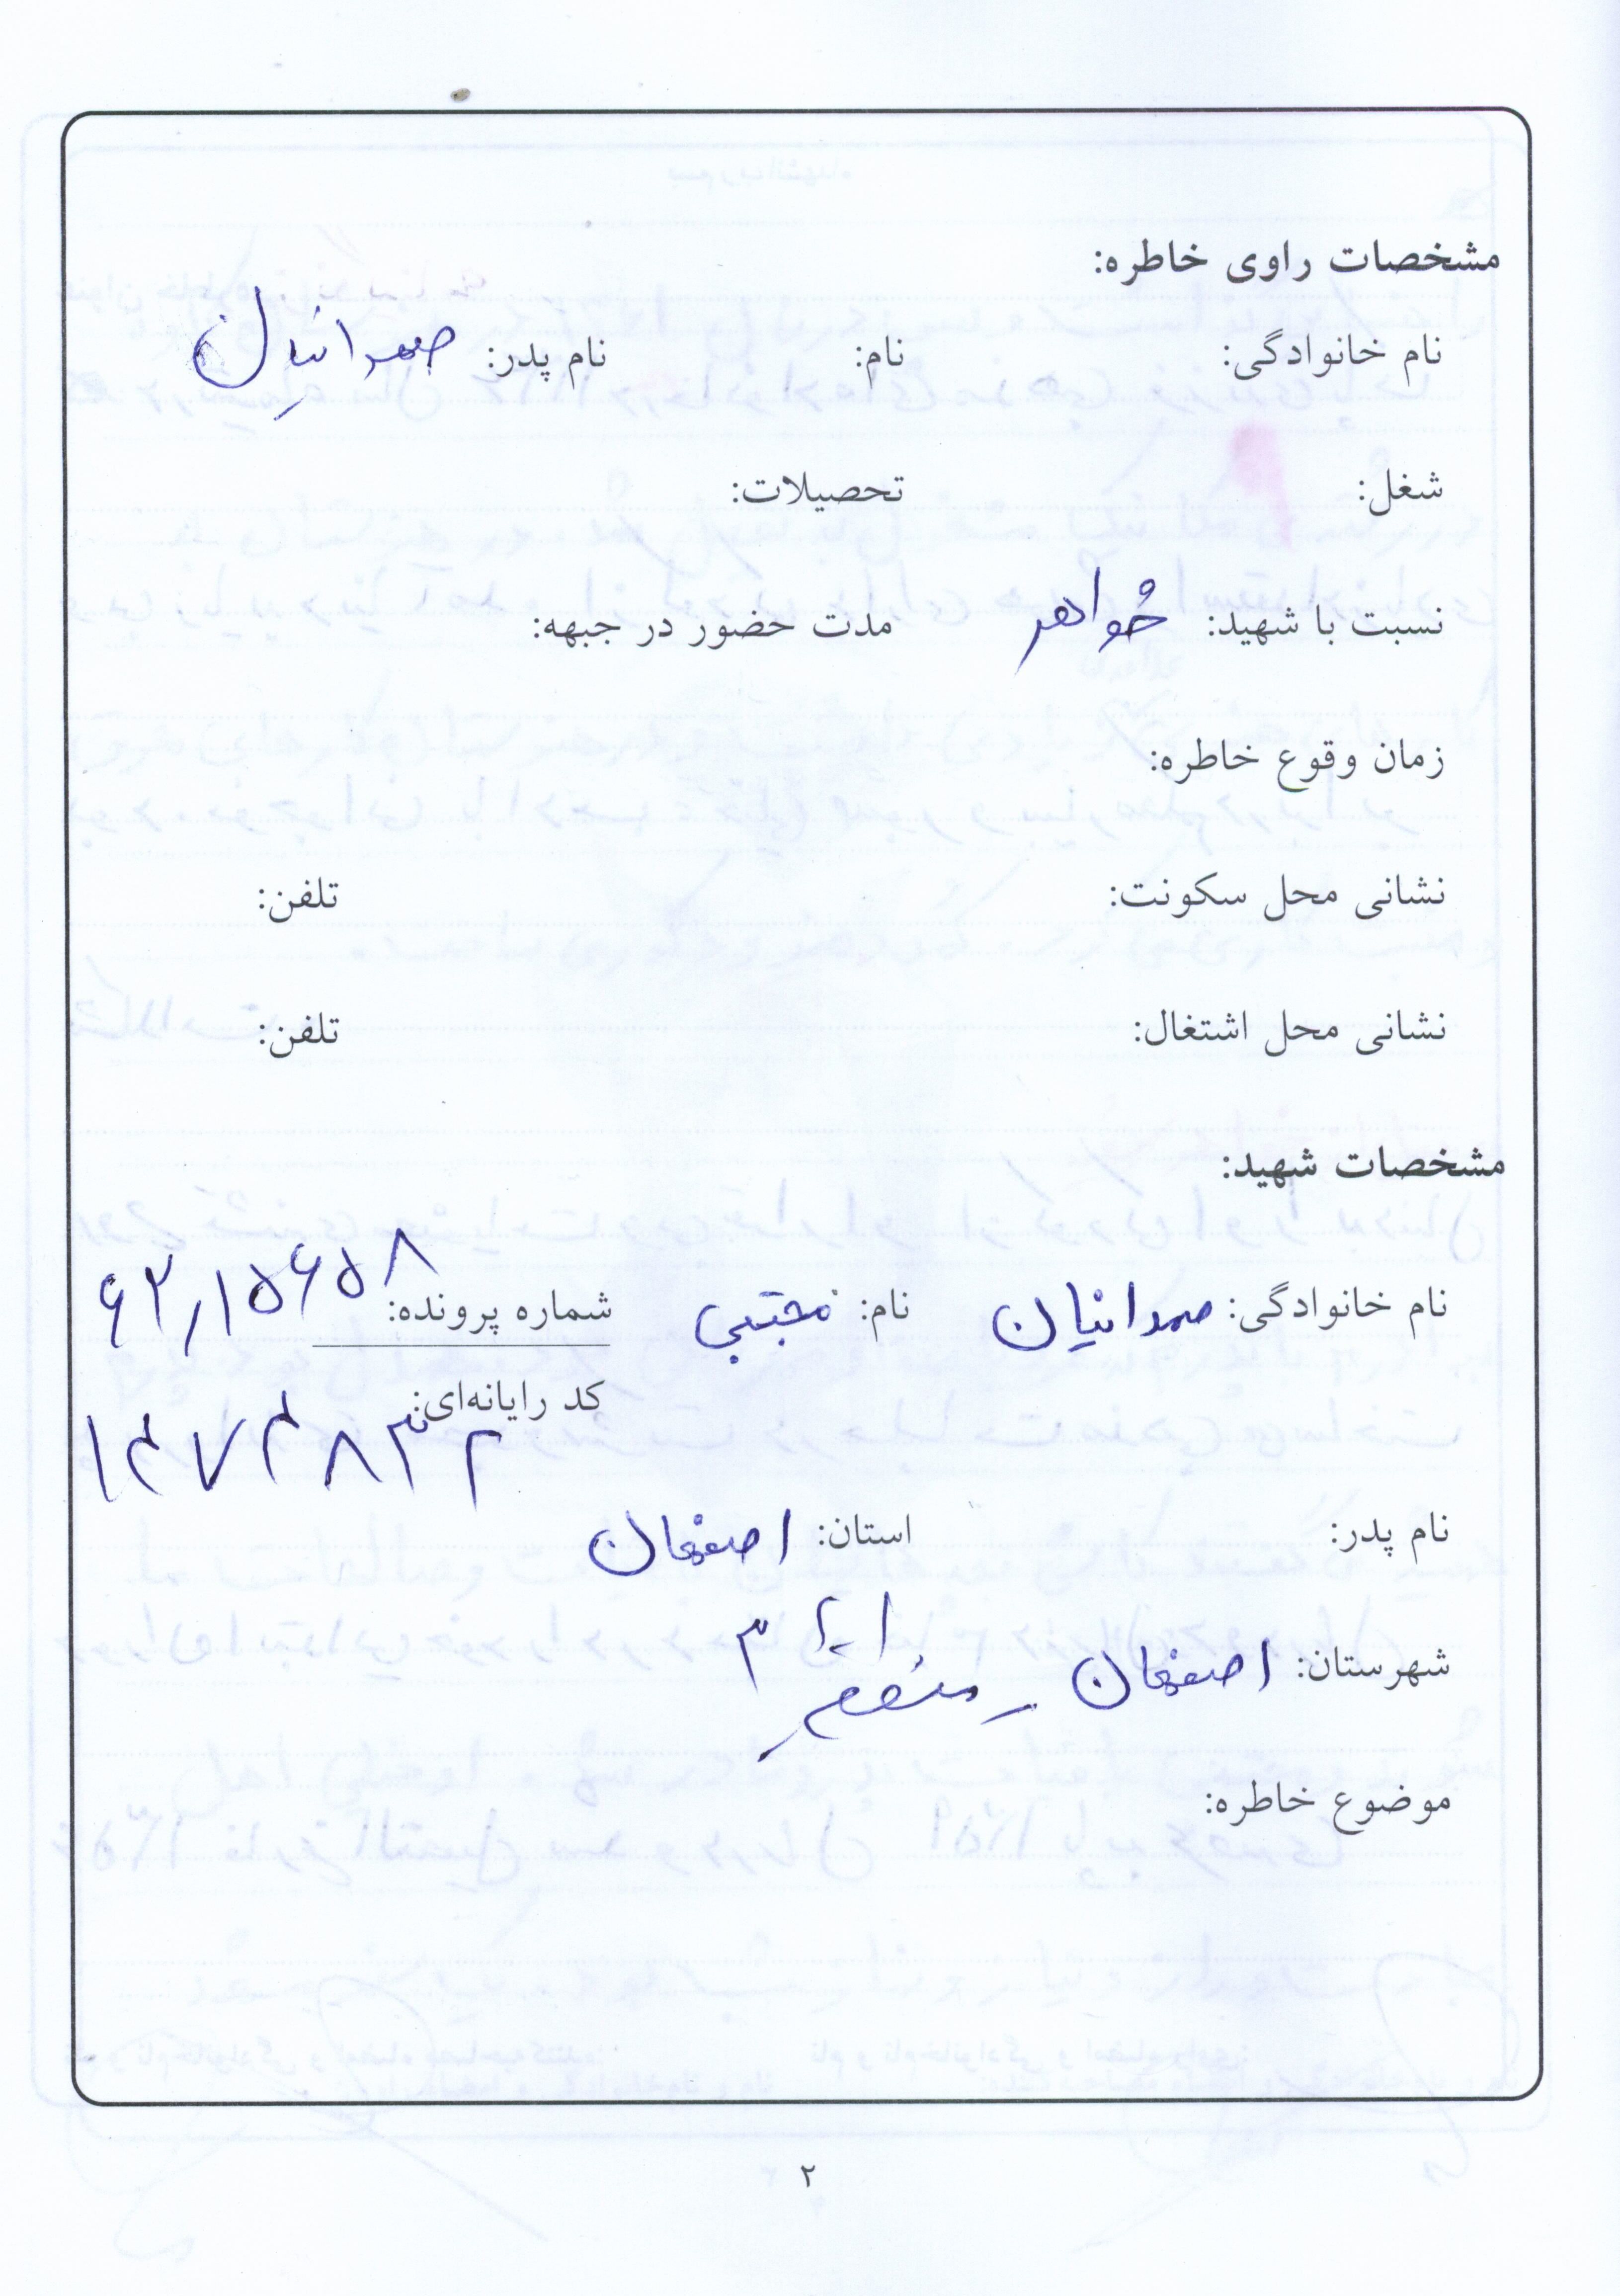 مشخصات راوی خاطره:
نام خانوادگی: نام: نام پدر: صمدانیان
شغل: تحصیلات:
نسبت با شهید: خواهر مدت حضور در جبهه:
زمان وقوع خاطره:
نشانی محل سکونت: تلفن:
نشانی محل اشتغال: تلفن:
مشخصات شهید:
نام خانوادگی: صمدانیان نام: مجتبی شماره پرونده: ۶۲/۱۵۶۵۸
کد رایانه‌ای: ۱۴۷۴۸۳۲
نام پدر: استان: اصفهان
شهرستان: اصفهان - ۳
موضوع خاطره:
۲